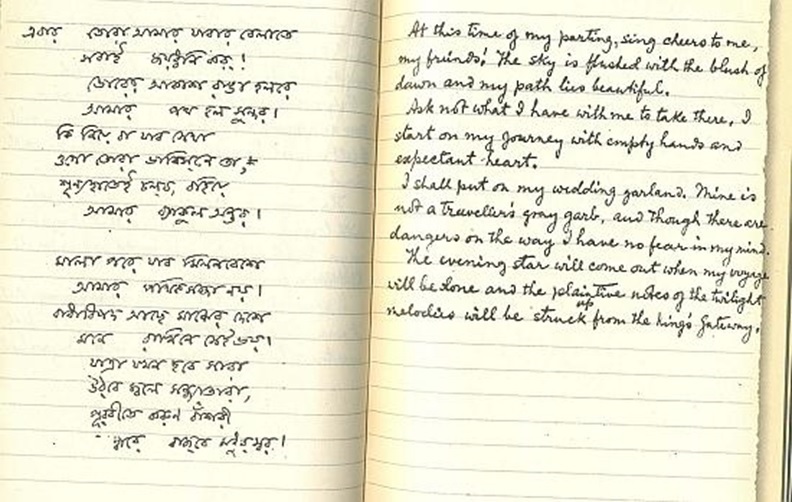 এবার তোরা আমার যাবার বেলাতে
সবাই জয়ধ্বনি কর্!
ভোরের আকাশ রাঙা হলরে
আমার পথ হল সুন্দর।
কি নিয়ে বা যাব সেথা
ওগো তোরা ভাবিসনে তা,
শূন্যহাতেই চলব, বহিয়ে
আমার ব্যাকুল অন্তর।
মালা পরে যাব মিলনবেশে
আমার পথিকসজ্জা নয়।
বাধাবিপদ আছে মাঝের দেশে
মনে রাখিনে সেই ভয়।
যাত্রা যখন হবে সারা
উঠবে জ্বলে সন্ধ্যাতারা,
পূরবীতে করুণ বাঁশরী
দ্বারে বাজবে মধুর স্বর।
At this time of my parting, sing cheers to me,
my friends! The sky is flushed with the blush of
dawn and my path lies beautiful.
Ask not what I have with me to take there, I
start on my journey with empty hands and
expectant heart.
I shall put on my wedding garland. Mine is
not a traveller's gray garb, and though there are
dangers on the way I have no fear in my mind.
The evening star will come out when my voyage
will be done and the plaintive notes of the twilight
melodies will be struck up from the king's gateway.